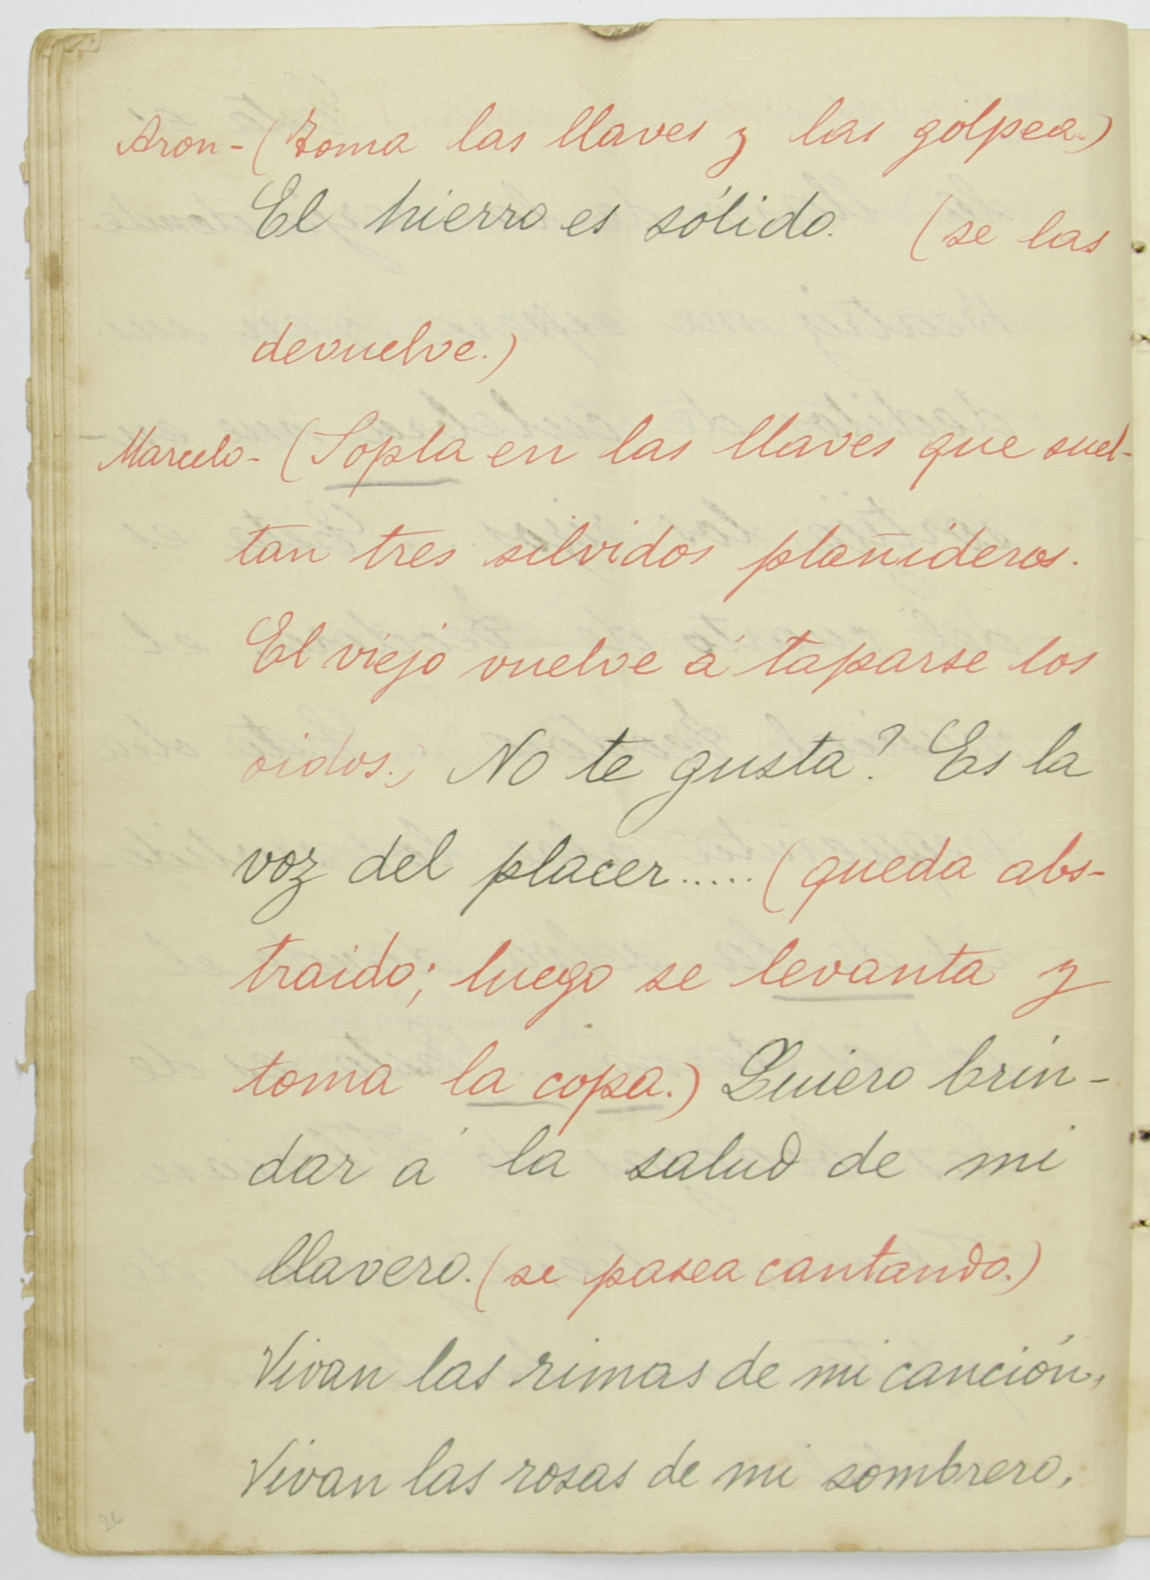 Aron - (toma las llaves y las golpea.)
El hierro es sólido. (se las
devuelve.)
Marcelo - (Sopla en las llaves que suel-
tan tres silvidos plañideros.
El viejo vuelve á taparse los
oidos.) No te gusta? Es la
voz del placer..... (queda abs-
traido; luego se levanta y
toma la copa.) Quiero brin-
dar á la salud de mi
llavero. (se pasea cantando.)
Vivan las rimas de mi canción,
Vivan las rosas de mi sombrero,
26